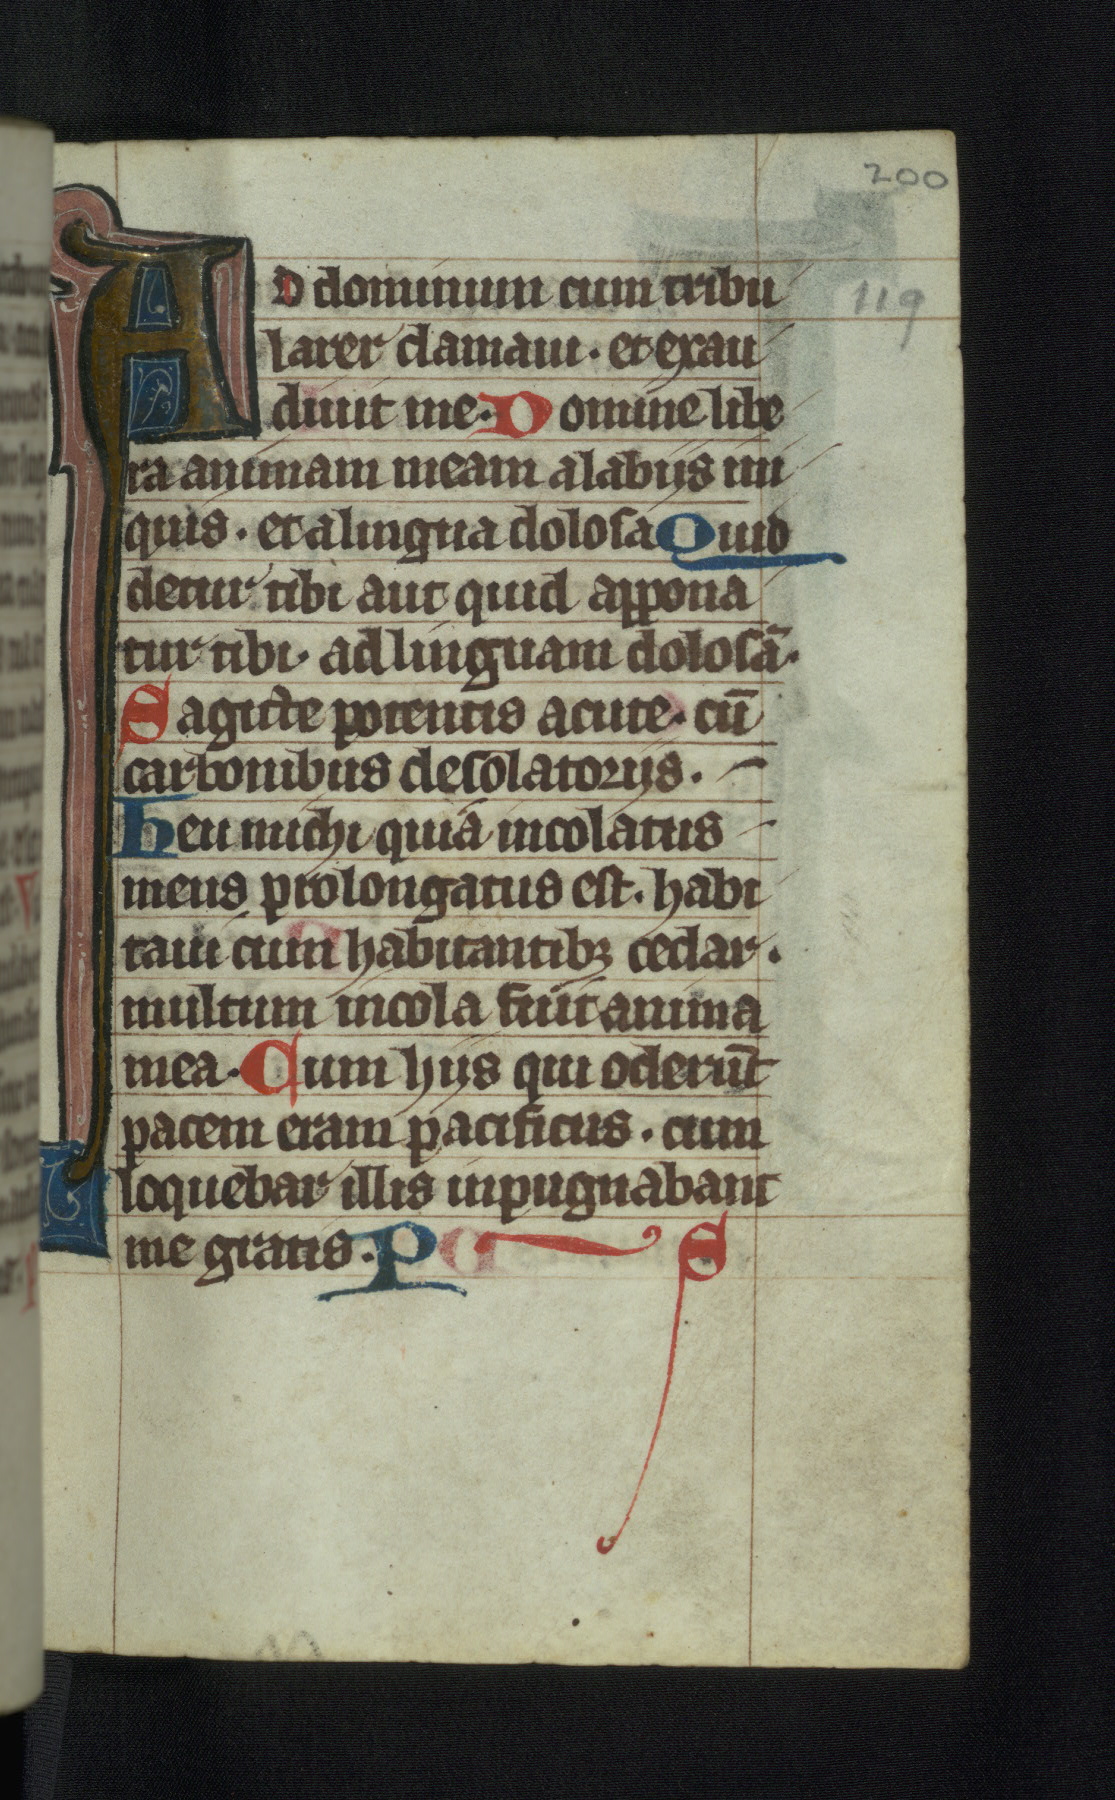 200
119
AD dominum cum tribu
larer clamaui · et exau
diuit me · Domine libe
ra animam meam alabijs ini
quis · et alingua dolosa Quid
detur tibi aut quid appona
tur tibi · ad linguam dolosā ·
Sagitte potentis acute · cū
carbonibus desolatorijs ·
Heu michi quia incolatus
meus prolongatus est · habi
taui cum habitantibꝫ cedar ·
multum incola fuit anima
mea · Cum hijs qui oderūt
pacem eram pacificus · cum
loquebar illis inpugnabant
me gratis · P S